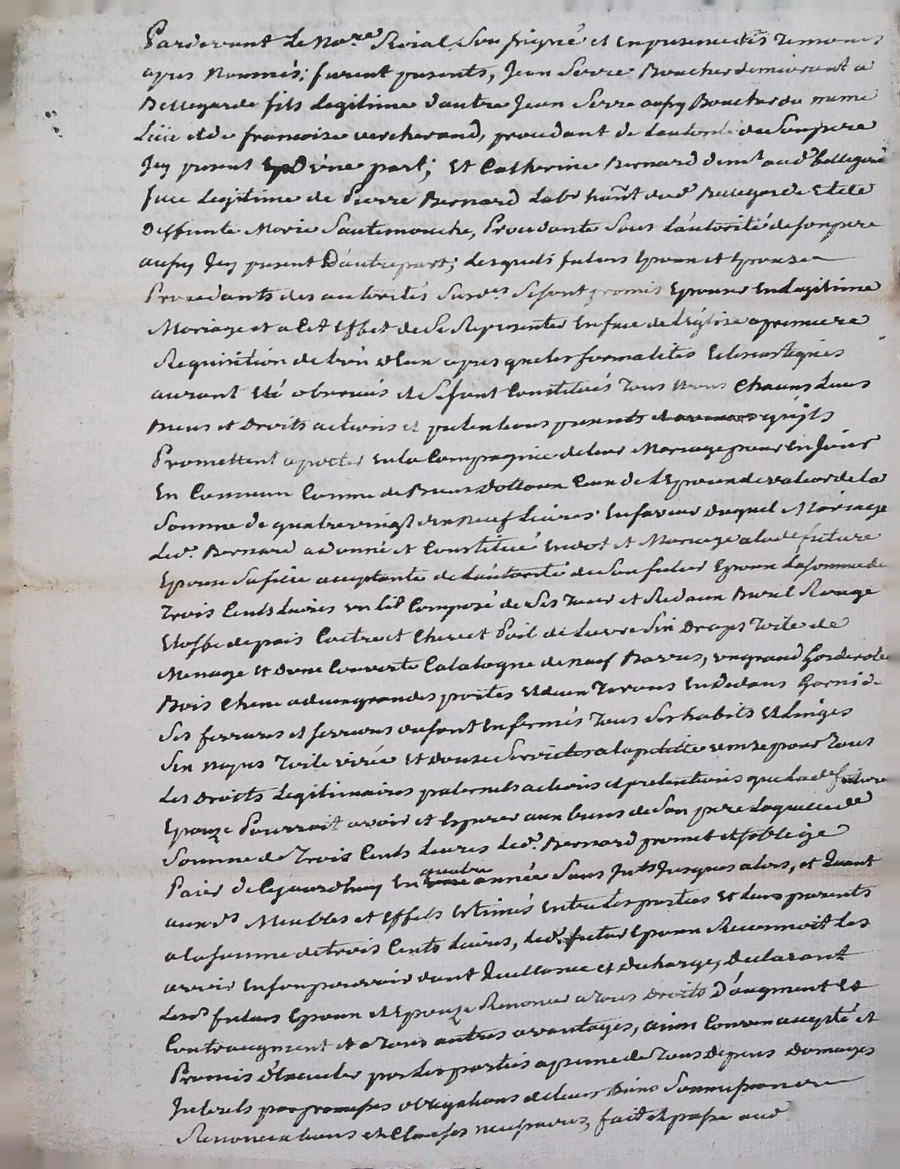 Pardevant Le No.re Roial Soussigné et En presence des Temoins
apres Nommés; furent presents, Jean Serre Boucher demeurant a
Bellegarde fils Legitime d'autre Jean Serre aussy Boucher du meme
Lieu et de francoise vercherand, procedant de Lautorité de Son pere
Jcy present d'une part; Et Catherine Bernard dem.t aud.t bellegarde
fille Legitime de Pierre Bernard Lab.r hãnt dud.t Bellegarde Et de
Deffunte Marie Sautemouche, Procedante Sous L'autorité de son pere
aussy Jcy present D'autre part; Lesquels futurs Epoux et Epouze
Procedants des autorités Susd.es Se sont promis Epouser En Legitime
Mariage et a Cet Effet de Se Representer En face de L'Eglise a premiere
Requisition de L'un d'Eux apres que les formalités
auront Eté observées et Se sont Constitués Tous Chacuns Leurs
Biens et Droits actions et pretentions presents et
Promettent aporter En la Compagnie de leur Mariage pour En Jouir
En Commun Comme de Biens Dotaux Ceux de L'Epoux de valeur de la
Somme de quatre vingt dix neuf Livres En faveur duquel Mariage
Led.t Bernard a donné et Constitué En dot et Mariage a lad.e future
Epouse Sa fille acceptante de L'autorité de Son futur Epoux La Somme de
Trois Cents Livres un Lit Composé de Ses Tour et Rideaux Burel Rouge
Etoffe de pais Coitre et Chevet Poil de Lievre Six Draps Toile de
Menage Et D'une Couverte Catalogne de neuf Barres, un grand Garderobe
Bois Chene a deux grandes portes Et deux Tirans En Dedans Garni de
Ses ferrures et serrures ou sont Enfermés Tous Ses habits Et Linges
Six Toile virée Et douze Serviettes a la petite venize pour Tous
Les Droits Legitimaires paternels actions et pretentions que Lad.e future
Epouze Pourroit avoir et Esperer aux biens de Son pere Laquelle
Somme de Trois Cents Livres Led.t Bernard promet et s'oblige
Paier De Cejourdhuy En quatre année Sans Jnt.ts Jusques alors, et Quant
aux d.ts Meubles et Effets Estimés Entre Les parties Et Leurs parents
a la somme de trois Cents Livres, Led.t futur Epoux Reconnoit Les
avoir En son pouvoir dont Quittance et decharge, Declarant
Lesd.ts futurs Epoux et Epouze Renoncer a Tous Droits D'augment Et
Contraugment et a Tous autres avantages, ainsi Convenu accepté et
Promis d'Executer par Les parties a peine de Tous Depens Domages
Jnterets par promesses obligations de leurs Biens Soumissions
Renonciations et Clauses necessaires, fait et passé aud.t